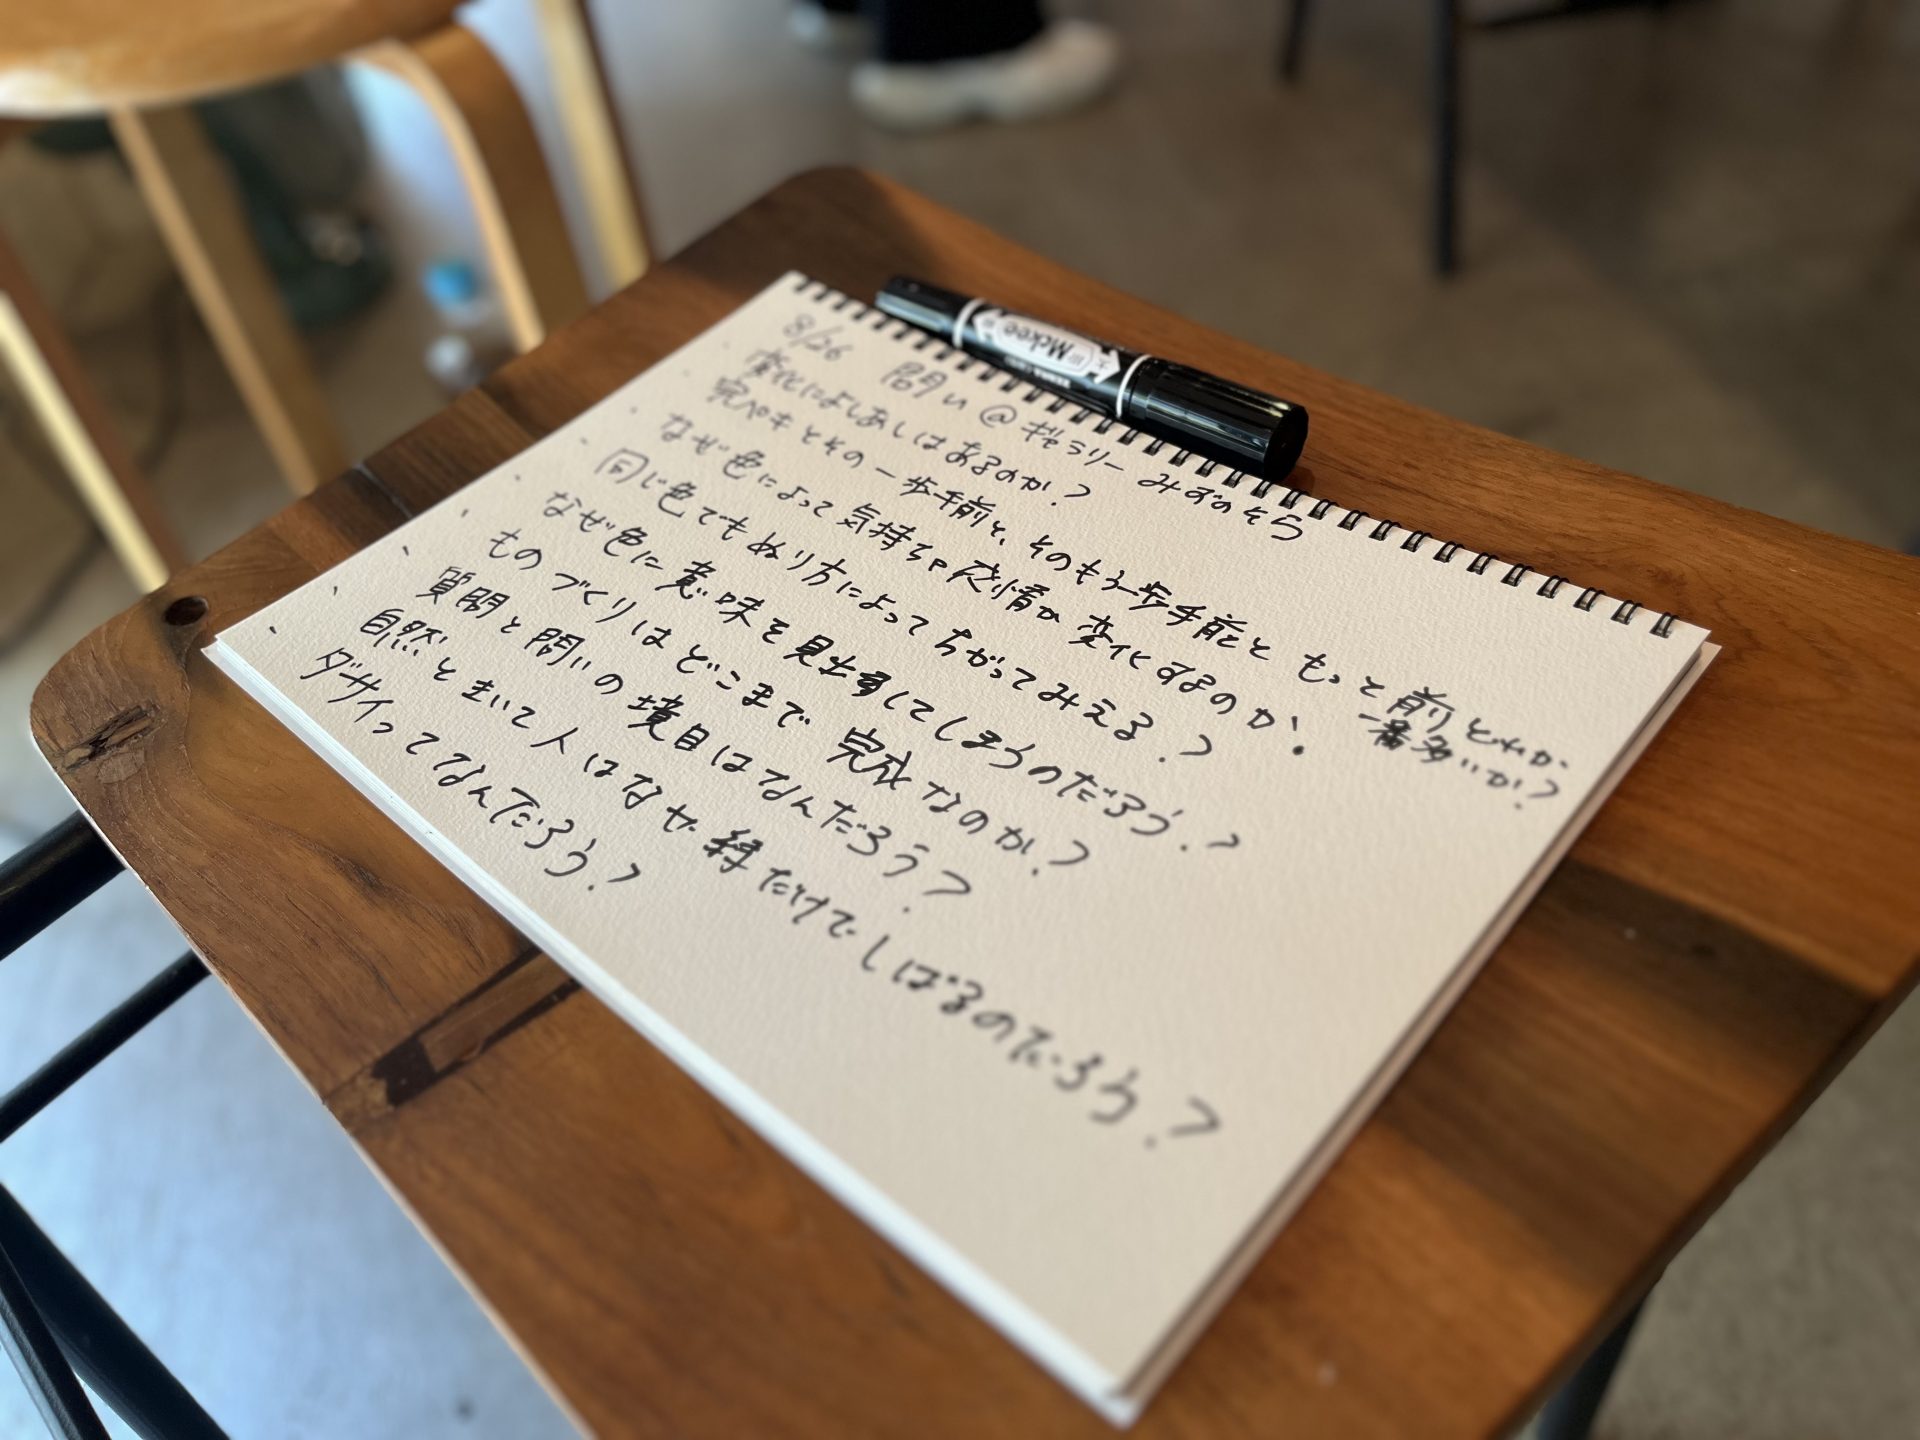 8/26 問い@ギャラリー みずのそら
・変化によしあしはあるのか?
・完ペキとその一歩手前と、そのもう一歩手前と もっと前とどれが
一番多いか?
・なぜ色によって気持ちや感情が変化するのか。
・同じ色でもぬり方によってちがってみえる?
・なぜ色に意味を見出してしまうのだろう?
・ものづくりはどこまで完成なのか?
・質問と問いの境目はなんだろう?
・自然とまいて人はなぜ緑だけでしばるのだろう?
・ダサイってなんだろう?
Mckee